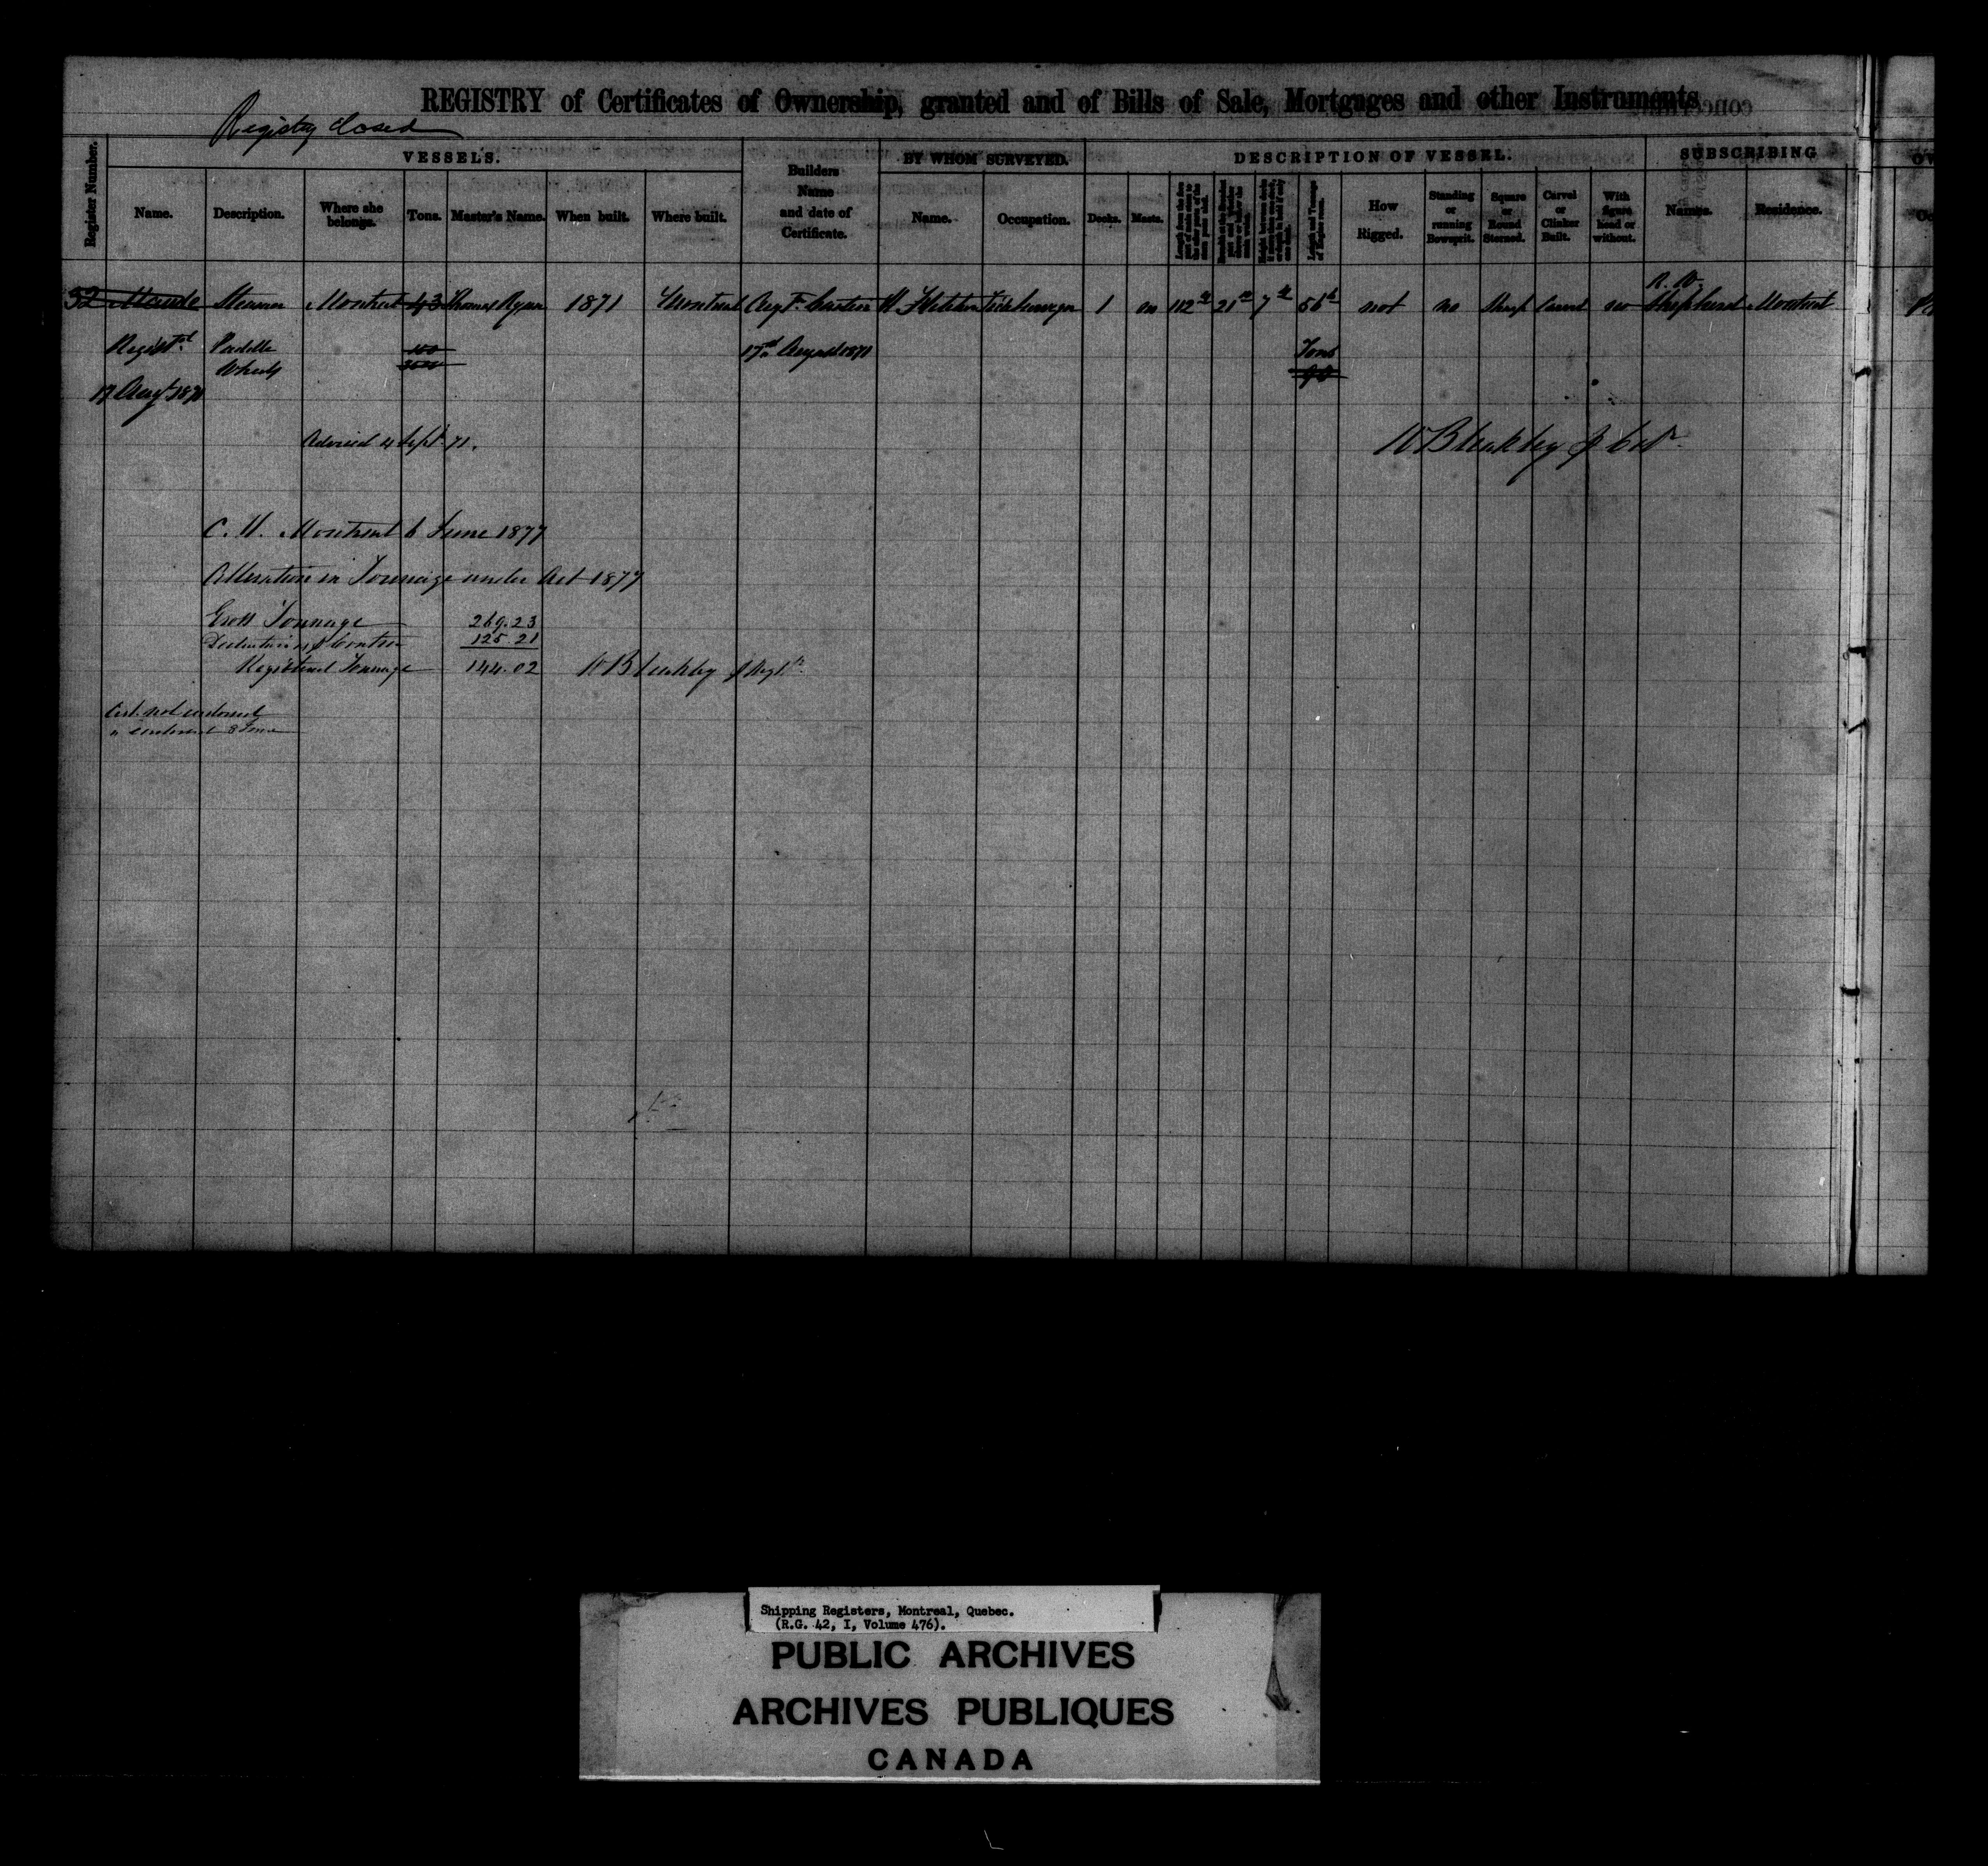 REGISTRY of Certificates of Ownership, granted and of Bills of Sale, Mortgages and other Instruments
Registry closed
Register Number.
VESSELS.
Name.
Description.
Where she belongs.
Tons.
Master's Name.
When built.
Where built.
Builders Name and date of Certificate.
BY WHOM SURVEYED.
Name.
Occupation.
DESCRIPTION OF VESSEL.
Decks.
Masts.
How Rigged.
Standing or running Bowsprit.
Square or Round Sterned.
Carvel or Clinker Built.
With figure head or without.
SUBSCRIBING
Names.
Residence.
R. W.
52 Maude Steamer Montreal 43 Thomas Ryan 1871 Montreal Augt. Cantin 1 on 112 21 7 56 not no Sharp Carvel no Shepherd Montreal
Regist'd Paddle Wheels 100 17 August 1871 Tons
17 Augt 1871
Advised 4 Sept. 71.
W Bleakley
C. H. Montreal 6 June 1877
Alteration in Tonnage under Act 1877
Gross Tonnage 269.23
Deduction 125.21
Registered Tonnage 144.02 W Bleakley
Cert. not endorsed
" endorsed 8 June
Shipping Registers, Montreal, Quebec.
(R.G. 42, I, Volume 476).
PUBLIC ARCHIVES
ARCHIVES PUBLIQUES
CANADA